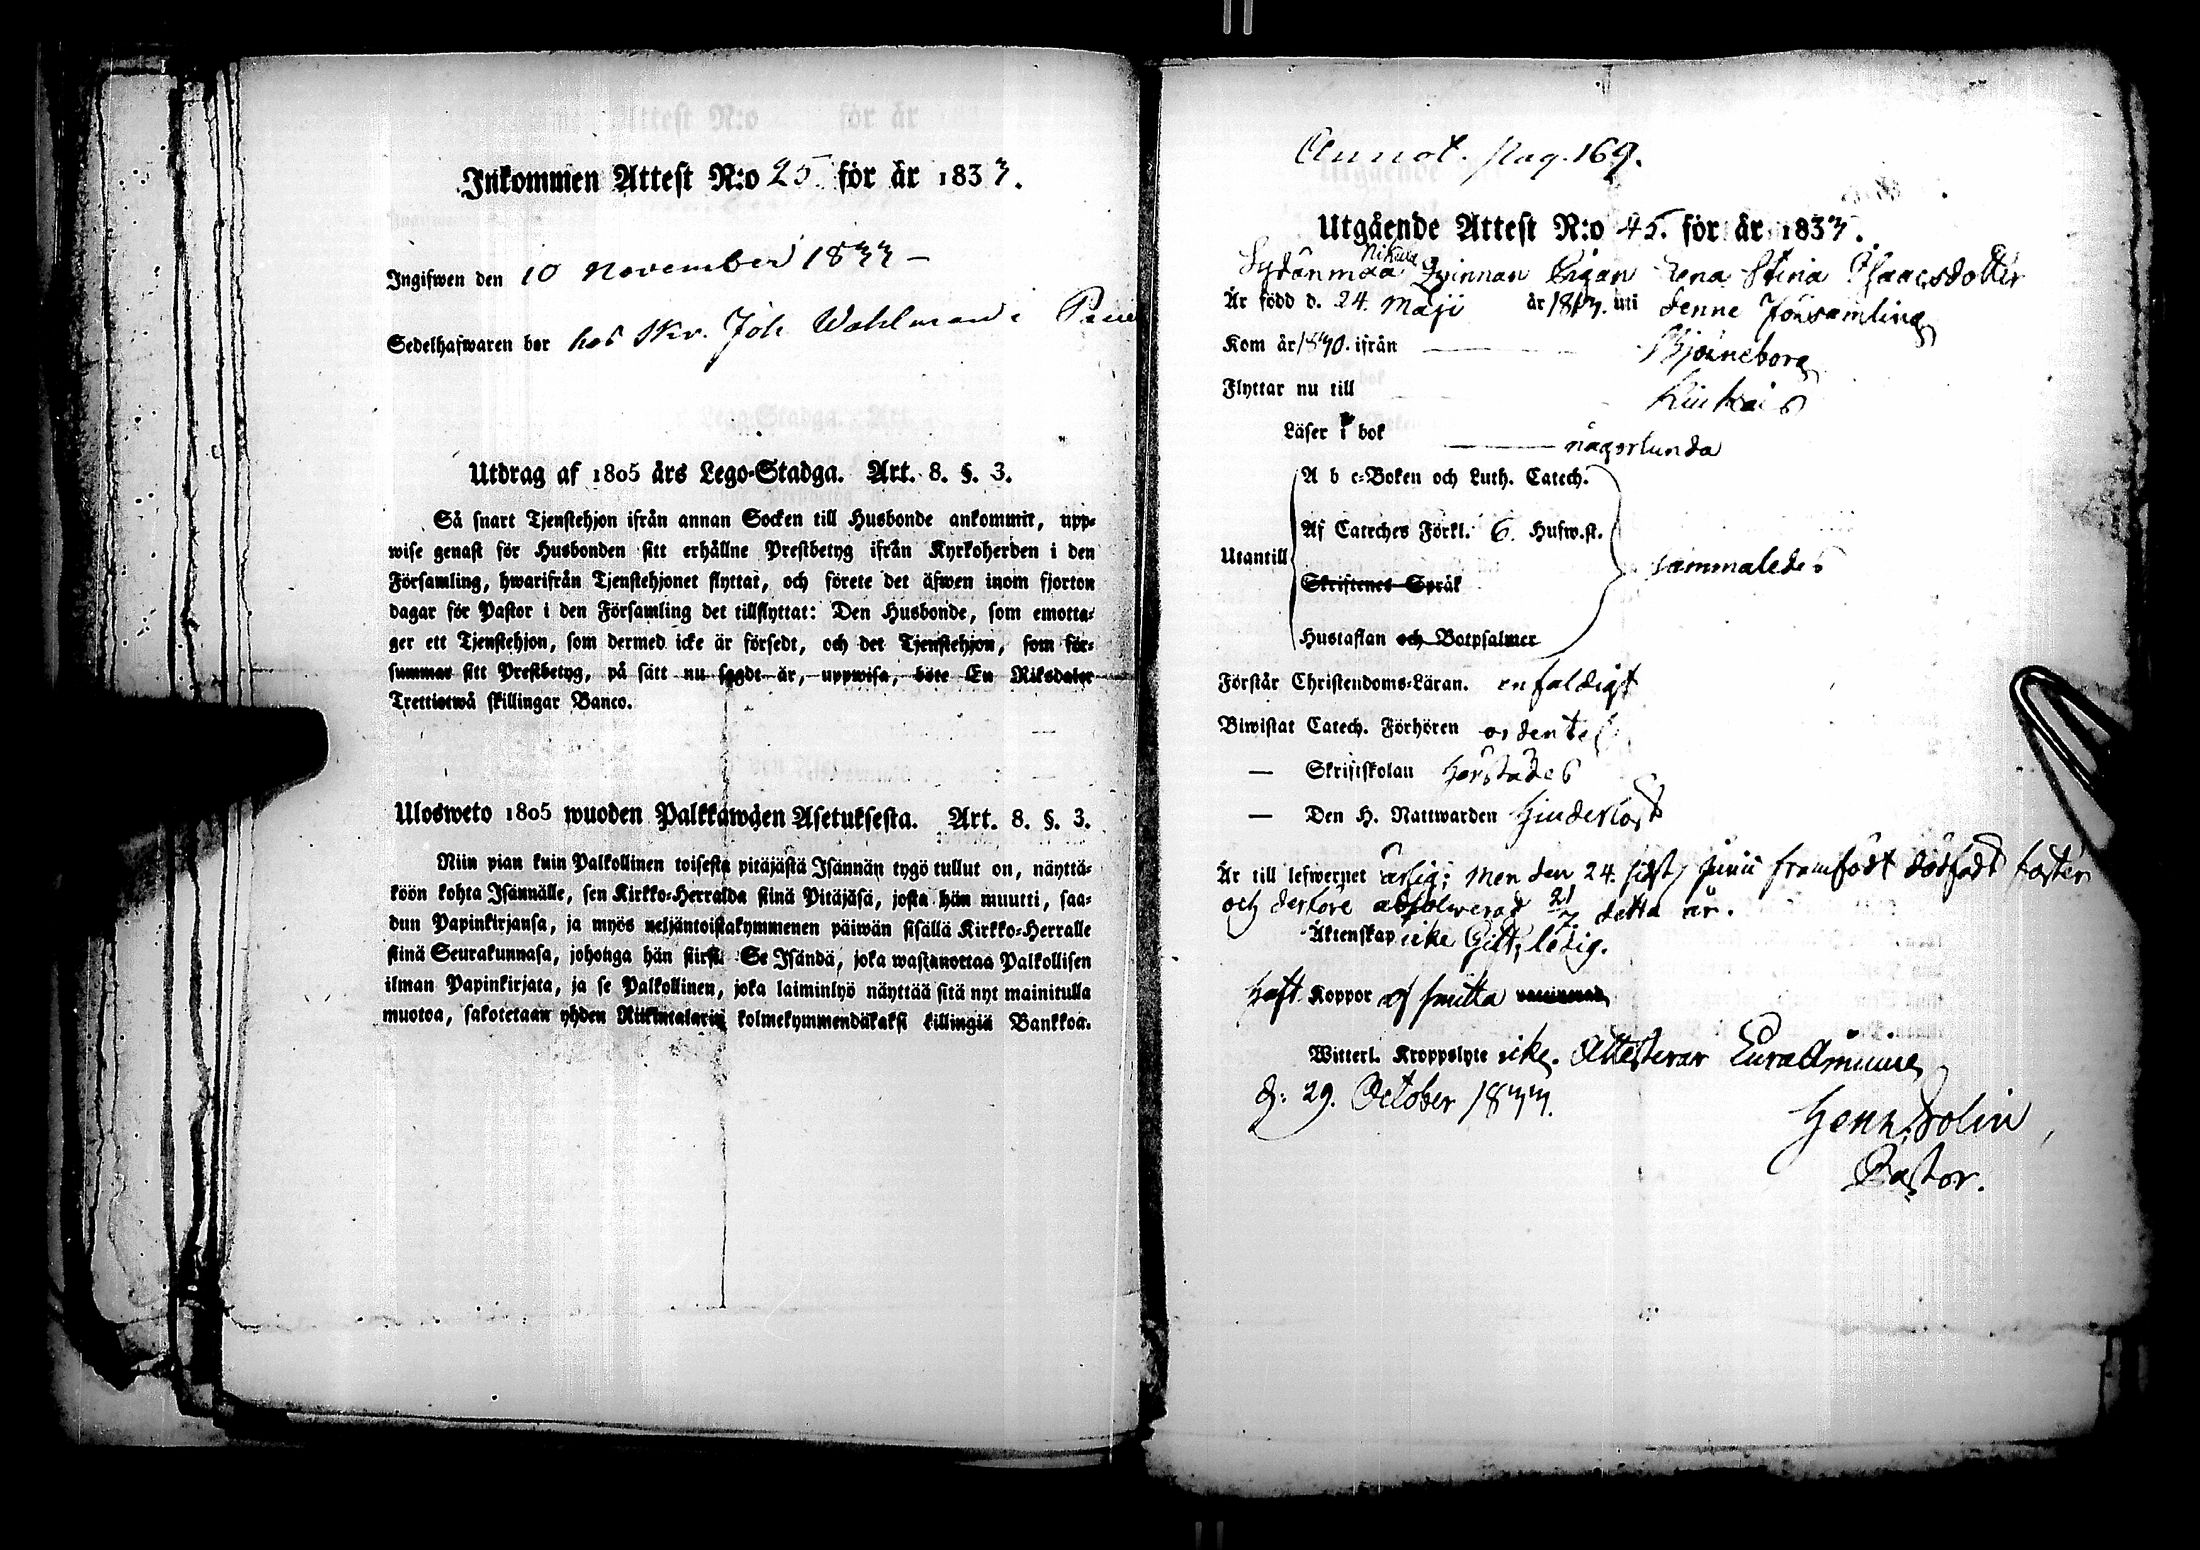 Inkommen Attest N:o 25 för år 1833.
Ingifwen den 10 November 1833 –
Sedelhafwaren bor hos Skr. Joh Wahlman i
Utdrag af 1805 års Lego-Stadga. Art. 8. §. 3.
Så snart Tjenstehjon ifrån annan Socken till Husbonde ankommit, upp-
wise genast för Husbonden sitt erhållne Prestbetyg ifrån Kyrkoherden i den
Församling, hwarifrån Tjenstehjonet flyttat, och förete det äfwen inom fjorton
dagar för Pastor i den Församling det tillflyttat: Den Husbonde, som emotta-
ger ett Tjenstehjon, som dermed icke är försedt, och det Tjenstehjon, som för-
summar sitt Prestbetyg, på sätt nu sagdt är, uppwisa, böte En Riksdaler
Trettiotwå skillingar Banco.
Ulosweto 1805 wuoden Palkkawäen Asetuksesta. Art. 8. §. 3.
Niin pian kuin Palkollinen toisesta pitäjästä Isännän tygö tullut on, näyttä-
köön kohta Isännälle, sen Kirkko-Herralda siinä Pitäjäsä, josta hän muutti, saa-
dun Papinkirjansa, ja myös neljäntoistakymmenen päiwän sisällä Kirkko-Herralle
siinä Seurakunnasa, johonga hän siirsi. Se Isändä, joka wastanottaa Palkollisen
ilman Papinkirjata, ja se Palkollinen, joka laiminlyö näyttää sitä nyt mainitulla
muotoa, sakotetaan yhden Riikintalarin kolmekymmendäkaksi killingiä Bankkoa.
Annot. pag. 169.
Utgående Attest N:o 45. för år 1833.
Nikula
Sydänmaa Qvinnan Pigan Lena Stina Isaacsdotter
Är född d. 24. Maji år 1813. uti denne Församling
Kom år 1830. ifrån Björneborg
Flyttar nu till Kiukais
Läser i bok någorlunda
A b c-Boken och Luth. Catech.
Af Cateches Förkl. 6. Hufw.st.
Utantill sammaledes
Skriftenes Språk
Hustaflan och Botpsalmer
Förstår Christendoms-Läran. enfaldigt
Biwistat Catech. Förhören ordentel.
— Skriftskolan
— Den H. Nattwarden Hinderlöst
Är till lefwernet ärlig; Men den 24. sistl. Junii framfödt dödfödt foster
och derföre absolverad 21/7 detta år.
Äktenskap icke Gift, ledig.
Haft Koppor af smitta
Witterl. Kroppslyte icke. Attesterar Eura Aminne
d: 29. October 1833.
Henr. Polin
Pastor.